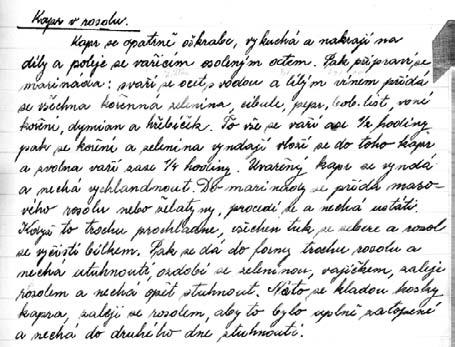 Kapr v rosolu.
Kapr se opatrně oškrabe, vykuchá a nakrájí na
díly a poleje se vařícím osoleným octem. Pak připraví se
marináda: svaří se ocet, s vodou a bílým vínem přidá
se všechna kořenná zelenina, cibule, pepř, bob. list, nové
koření, dymian a hřebíček. To vše se vaří asi 1/2 hodiny
pak se koření a zelenina vyndají vloží se do toho kapr
a zvolna vaří zase 1/4 hodiny. Uvařený kapr se vyndá
a nechá vychladnout. Do marinády se přidá maso-
vého rosolu nebo želatyny, procedí se a nechá ustáti.
Když to trochu prochladne, všechen tuk se sebere a rosol
se vyčistí bílkem. Pak se dá do formy trochu rosolu a
nechá utuhnouti, ozdobí se zeleninou, vajíčkem, zaleje
rosolem a nechá opět stuhnout. Na to se kladou kousky
kapra, zalejí se rosolem, aby to bylo úplně zatopené
a nechá do druhého dne stuhnouti.